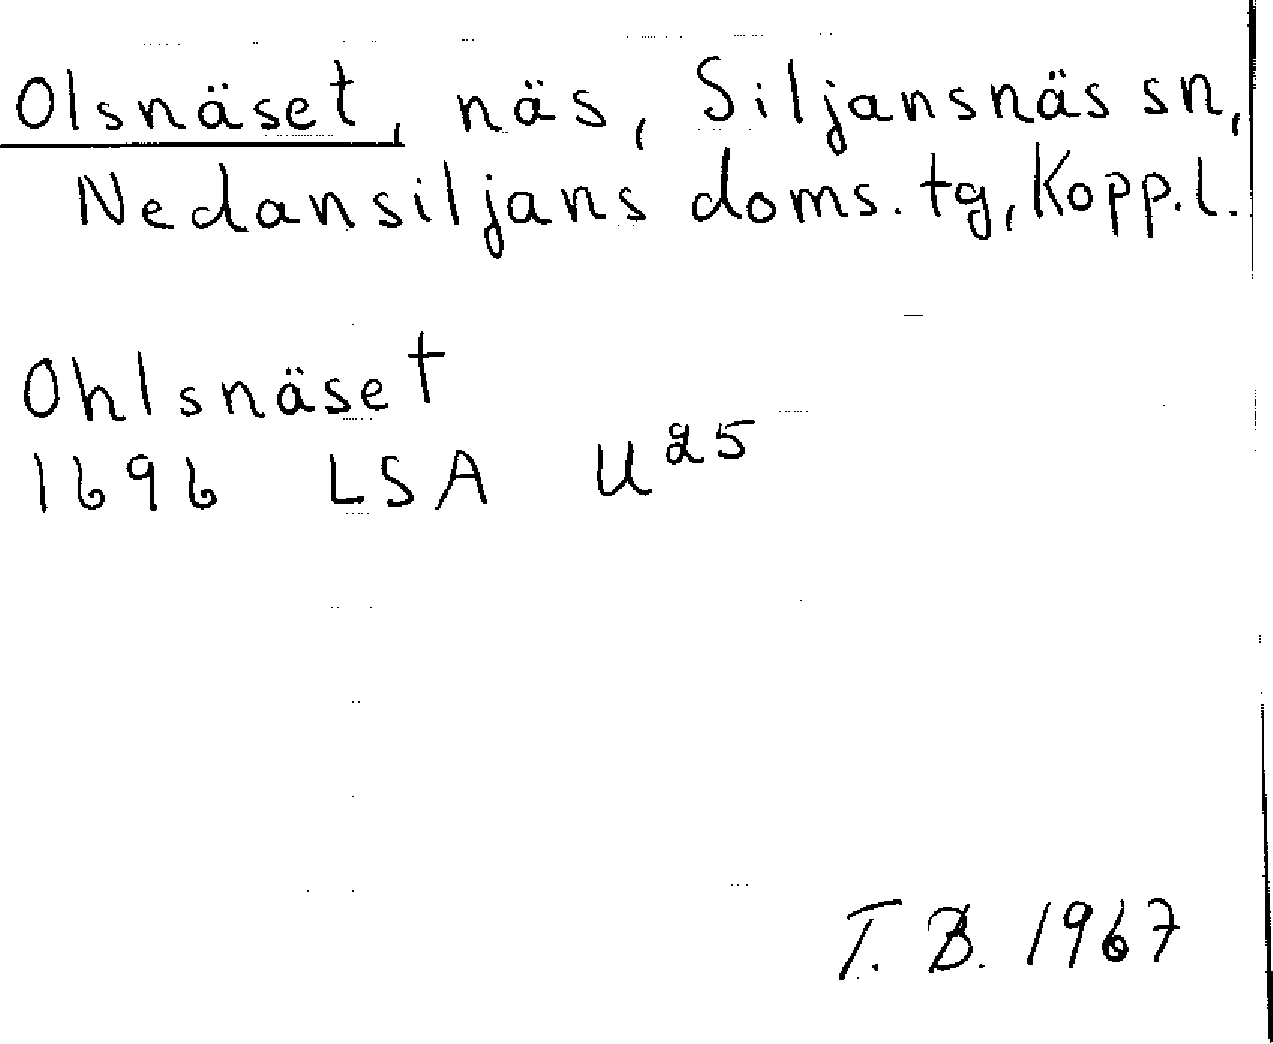 Olsnäset, näs, Siljansnäs sn,
Nedansiljans doms. tg, Kopp.l.
Ohlsnäset
1696 LSA U25
T. B. 1967